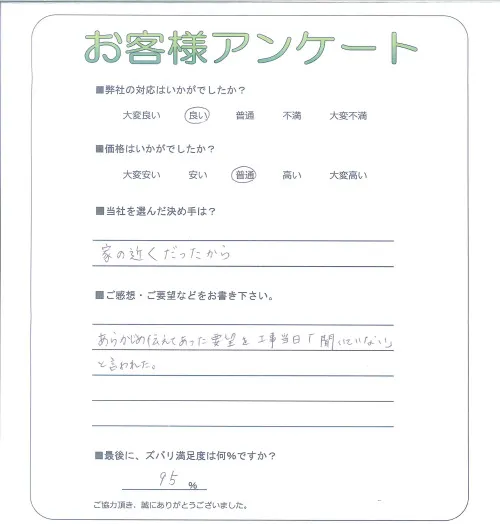 お客様アンケート
■弊社の対応はいかがでしたか？
大変良い 良い 普通 不満 大変不満
■価格はいかがでしたか？
大変安い 安い 普通 高い 大変高い
■当社を選んだ決め手は？
家の近くだったから
■ご感想・ご要望などをお書き下さい。
あらかじめ伝えてあった要望を工事当日「聞いていない」
と言われた。
■最後に、ズバリ満足度は何%ですか？
95 %
ご協力頂き、誠にありがとうございました。